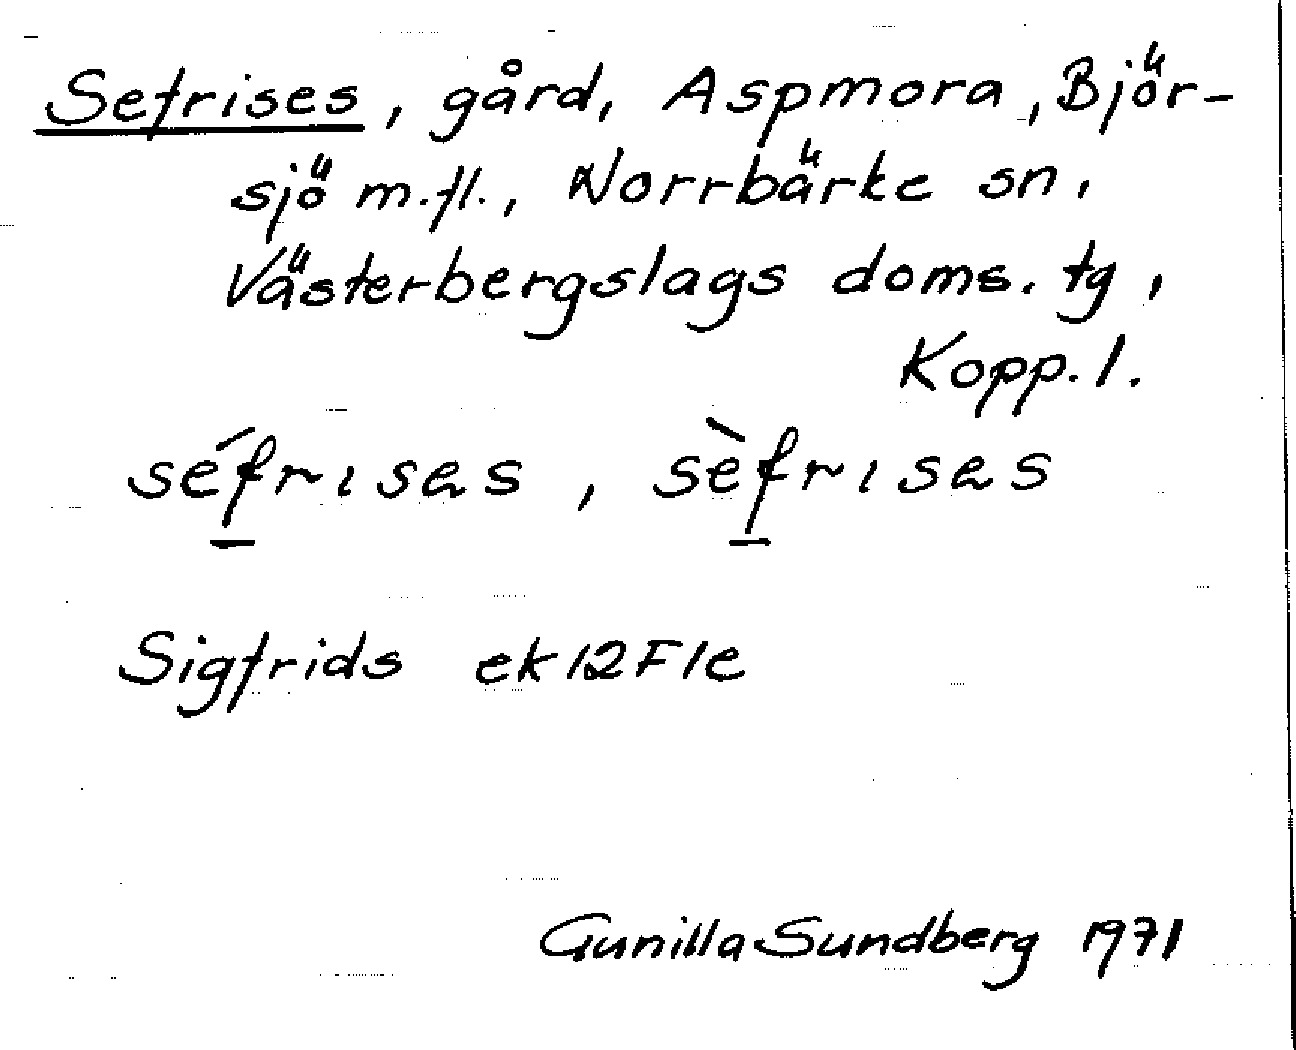 Sefrises, gård, Aspmora, Björ-
sjö m.fl., Norrbärke sn,
Västerbergslags doms. tg,
Kopp. l.
séfrısəs, sèfrısəs
Sigfrids ek 12F1e
Gunilla Sundberg 1971